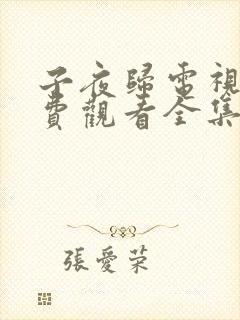 子夜歸電視
費觀看全集
張愛荣